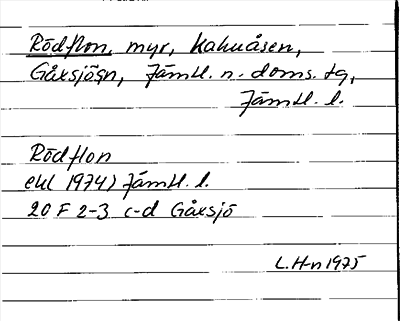 Rödflon, myr, Kahuåsen,
Gåxsjösn, Jämtl. n. doms. tg,
Jämtl. l.
Rödflon
ekl 1974) Jämtl. l.
20 F 2-3 c-d Gåxsjö
L. H-n 1975